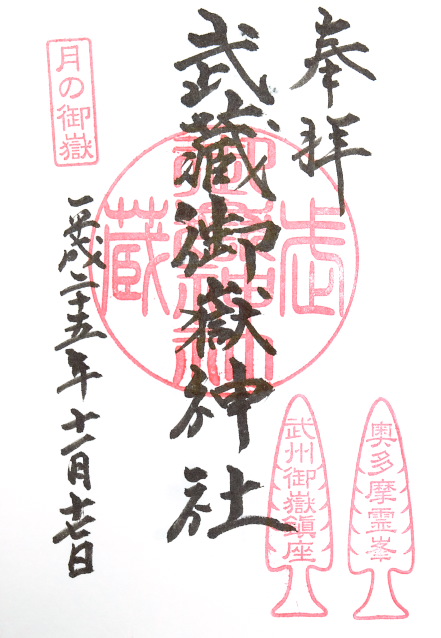 奉拝
武蔵御嶽神社
平成二十五年十一月十七日
月の御嶽
武蔵
御嶽神社
奥多摩霊峯
武州御嶽鎮座